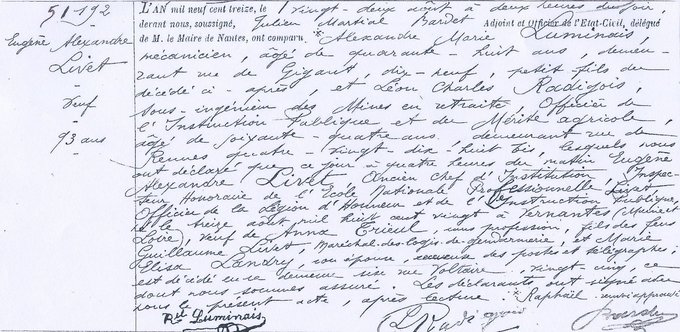 51-192
Eugène Alexandre
Livet
Veuf
93 ans
L'AN mil neuf cent treize, le vingt-deux août à deux heures du soir,
devant nous, soussigné, Julien Martial Bardet Adjoint et Officier de l'État-Civil, délégué
de M. le Maire de Nantes, ont comparu Alexandre Marie Luminais,
mécanicien, âgé de quarante-huit ans, demeu-
rant rue de Gigant, dix-neuf, petit-fils du
décédé ci-après, et Léon Charles Radigois,
sous-ingénieur des Mines en retraite, Officier de
l'Instruction Publique et du Mérite agricole,
âgé de soixante-quatre ans demeurant rue de
Rennes quatre-vingt-dix-huit bis, lesquels nous
ont déclaré que ce jour à quatre heures du matin Eugène
Alexandre Livet Ancien Chef d'Institution, Inspec-
teur Honoraire de l'École Nationale Professionnelle Livet
Officier de la Légion d'Honneur et de l'Instruction Publique,
né le treize août mil huit cent vingt à Vernantes (Maine et
Loire), veuf de Anna Trieul, sans profession, fils des feus
Guillaume Livet, Maréchal-des-logis de gendarmerie, et Marie
Elisa Landry, son épouse, des postes et télégraphes;
est décédé en sa demeure sise rue Voltaire vingt cinq, ce
dont nous sommes assuré. Les déclarants ont signé avec
nous le présent acte, après lecture. Raphaël aussi approuvé
Rl Luminais
L Radigois
Bardet